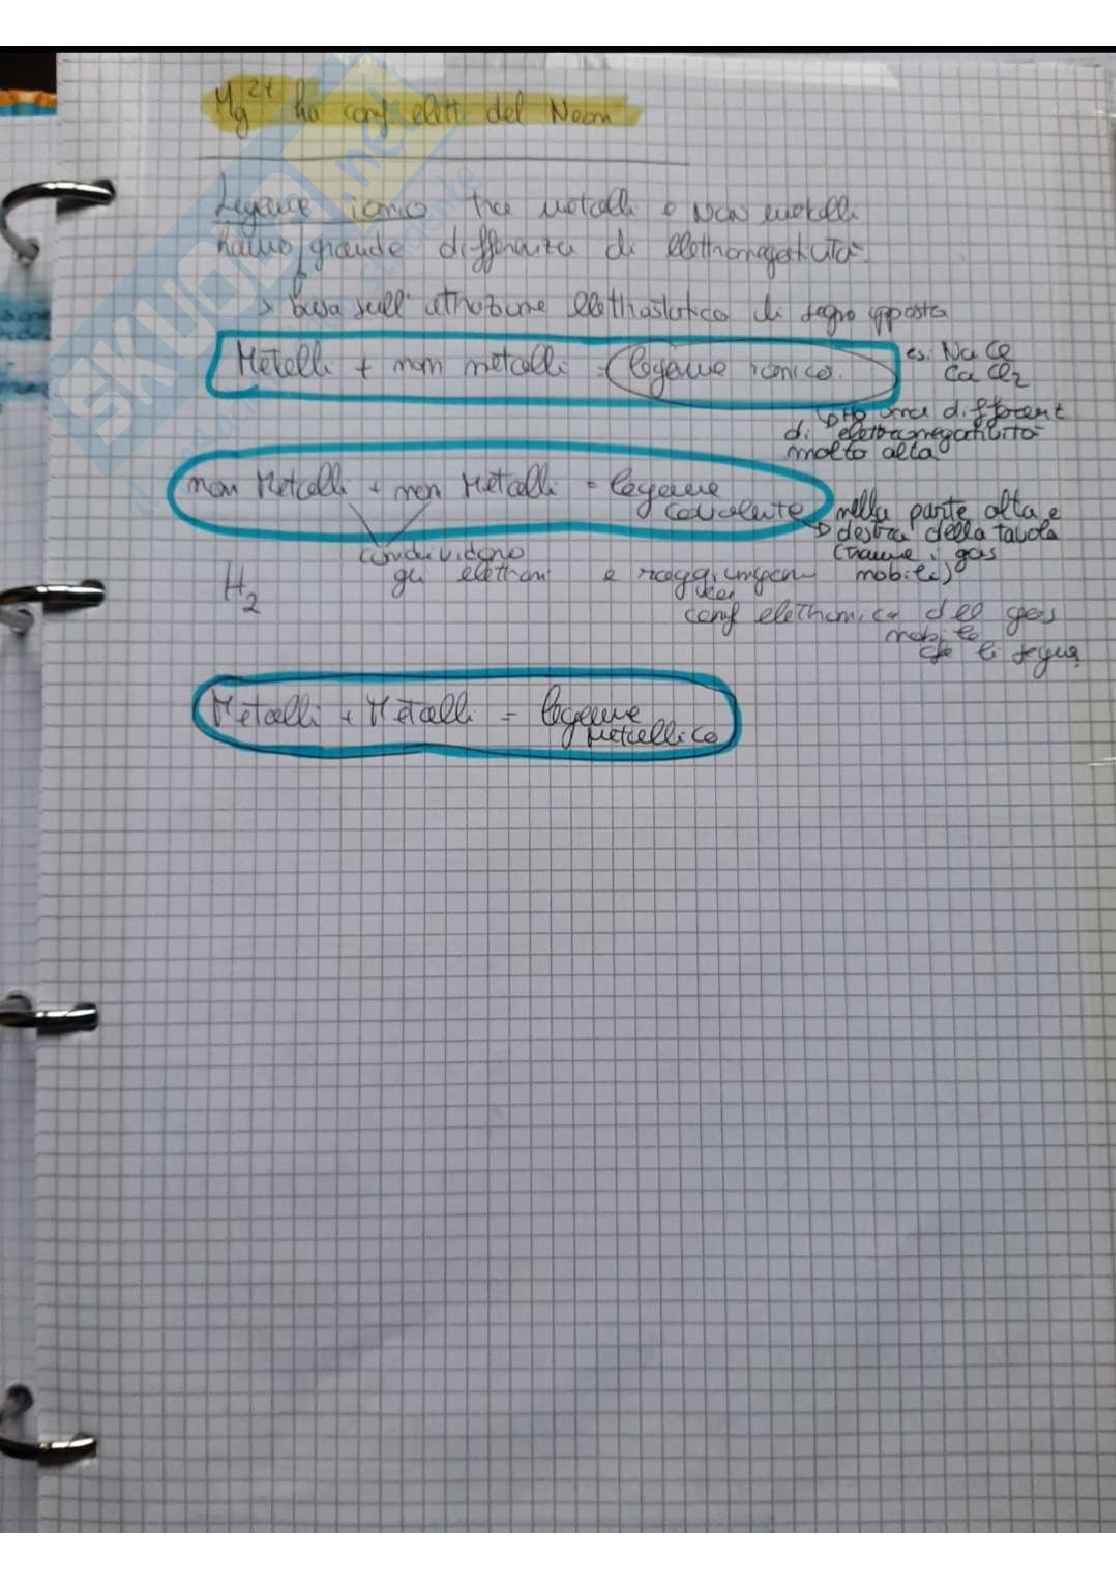 Mg2+ ha conf elett del Neon
Legame ionico tra metalli e Non metalli
hanno grande differenza di elettronegatività
> basa sull'attrazione elettrostatica di segno opposto
Metalli + non metalli = legame ionico.
es. NaCl
CaCl2
Ho una different
di elettronegatività
molto alta
non Metalli + non Metalli = legame
covalente
nella parte alta e
destra della tavola
(tranne i gas
nobili)
condividono
gli elettroni e raggiungono
H2
conf elettronica del gas
nobile
che li segue
Metalli + Metalli = legame
metallico
SKUOLA.net